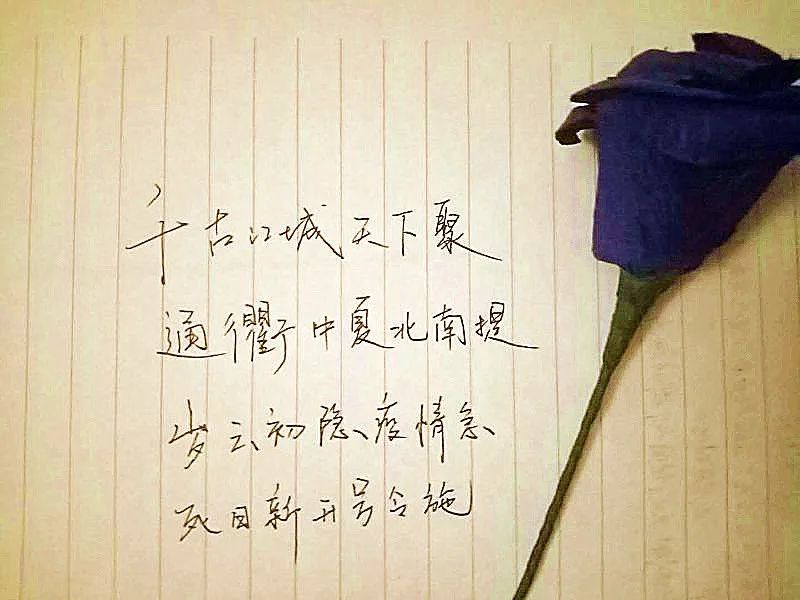 千古江城天下聚
通衢中夏北南提
岁云初隐疫情急
死日新开号令施